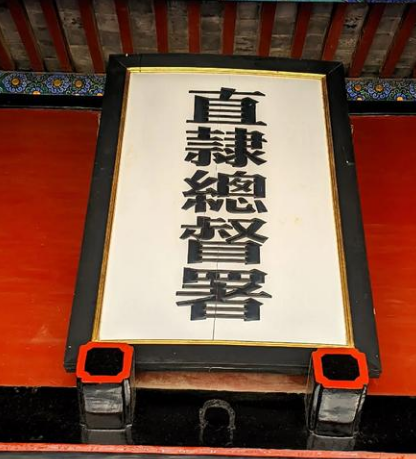 直隸總督署